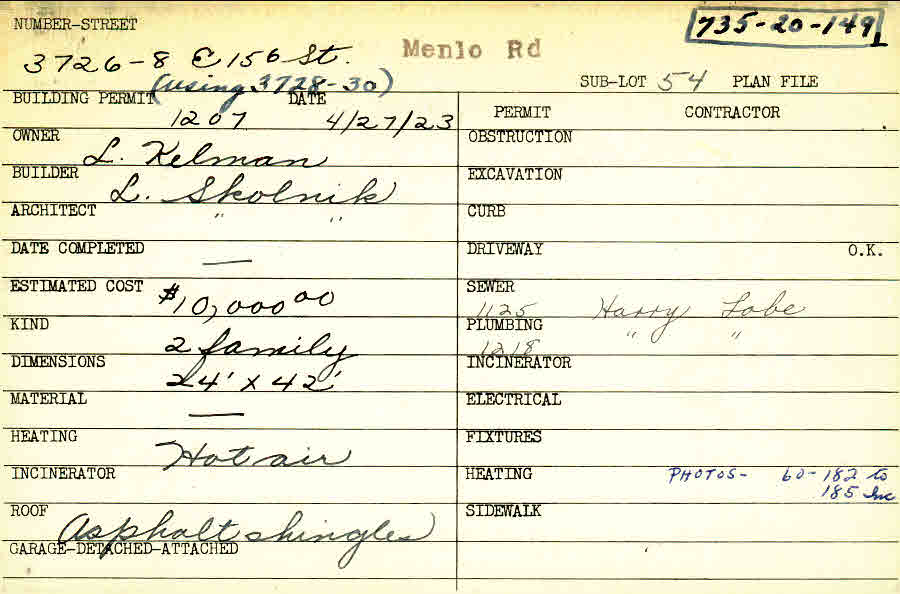 NUMBER-STREET
735-20-149
3726-8 E 156 St. Menlo Rd
(using 3728-30)
SUB-LOT 54 PLAN FILE
BUILDING PERMIT DATE
1207 4/27/23
OWNER
L. Kelman
BUILDER
L. Skolnik
ARCHITECT " "
DATE COMPLETED —
ESTIMATED COST $10,000 00
KIND
2 family
DIMENSIONS
24' x 42'
MATERIAL —
HEATING
Hot air
INCINERATOR
ROOF
Asphalt shingles
GARAGE-DETACHED-ATTACHED
PERMIT CONTRACTOR
OBSTRUCTION
EXCAVATION
CURB
DRIVEWAY O.K.
SEWER
1125 Harry Lobe
PLUMBING " "
1218
INCINERATOR
ELECTRICAL
FIXTURES
HEATING PHOTOS- 60-182 to
185 Inc
SIDEWALK